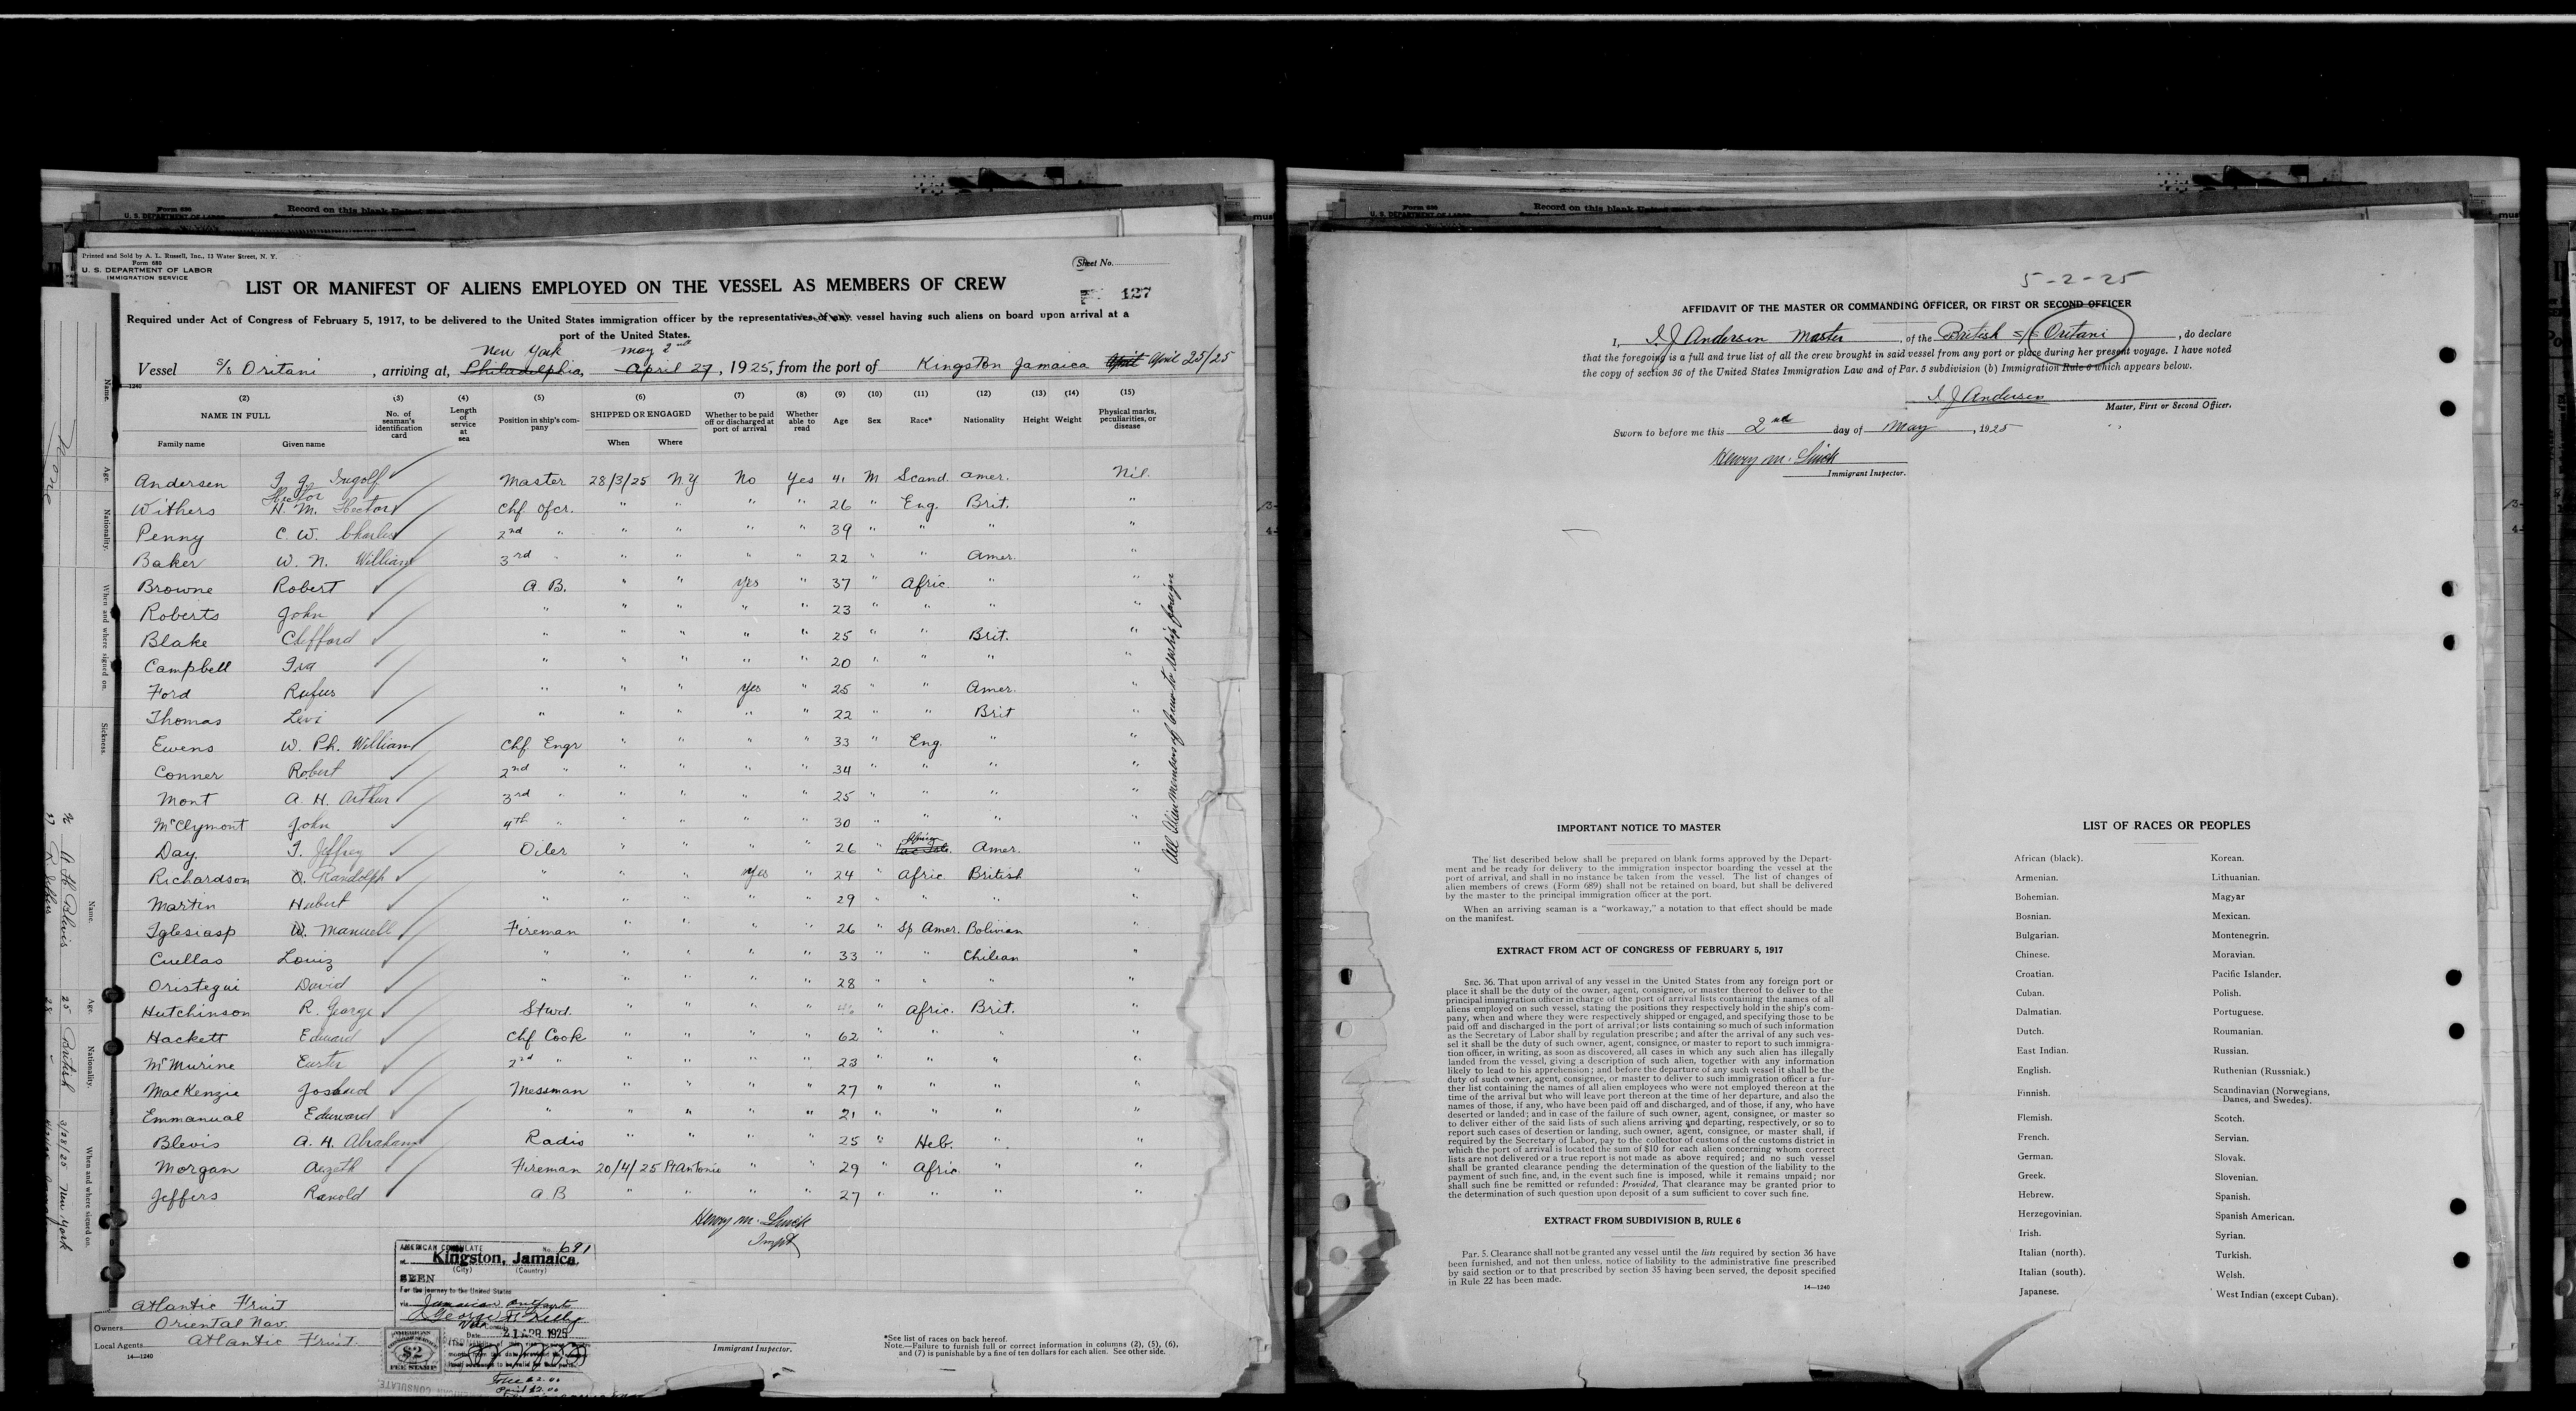 Form 689
U. S. DEPARTMENT OF LABOR
Record on this blank United
Printed and Sold by A. L. Russell, Inc., 13 Water Street, N. Y.
Form 680
U. S. DEPARTMENT OF LABOR
IMMIGRATION SERVICE
Sheet No.
LIST OR MANIFEST OF ALIENS EMPLOYED ON THE VESSEL AS MEMBERS OF CREW
127
Required under Act of Congress of February 5, 1917, to be delivered to the United States immigration officer by the representatives of any vessel having such aliens on board upon arrival at a
port of the United States.
New York May 2nd
Vessel S/S Oritani, arriving at, Philadelphia, April 27, 1925, from the port of Kingston Jamaica April April 25/25
14-1240
(2) (3) (4) (5) (6) (7) (8) (9) (10) (11) (12) (13) (14) (15)
NAME IN FULL No. of seaman's identification card Length of service at sea Position in ship's company SHIPPED OR ENGAGED Whether to be paid off or discharged at port of arrival Whether able to read Age Sex Race* Nationality Height Weight Physical marks, peculiarities, or disease
Family name Given name When Where
Andersen I. J. Ingolf Master 28/3/25 N.Y No Yes 41 M Scand. Amer. Nil.
Hector
Withers H. M. Hector Chf Ofcr. " " " " 26 " Eng. Brit. "
Penny C. W. Charles 2nd " " " " " 39 " " " "
Baker W. N. William 3rd " " " " " 22 " " Amer. "
Browne Robert A. B. " " Yes " 37 " Afric. " "
Roberts John " " " " " 23 " " " "
Blake Clifford " " " " " 25 " " Brit. "
Campbell Iva " " " " " 20 " " " "
Ford Rufus " " " Yes " 25 " " Amer. "
Thomas Levi " " " " " 22 " " Brit "
Ewens W. Ph. William Chf Engr " " " " 33 " Eng. " "
Conner Robert 2nd " " " " " 34 " " " "
Mont A. H. Arthur 3rd " " " " " 25 " " " "
McClymont John 4th " " " " " 30 " " " "
Day. I. Jeffrey Oiler " " " " 26 " Afric Amer. "
Richardson O. Randolph " " " Yes " 24 " Afric British "
Martin Hubert " " " " " 29 " " " "
Iglesiasp W. Manuell Fireman " " " " 26 " Sp Amer. Bolivian "
Cuellas Louiz " " " " " 33 " " Chilian "
Oristegui David " " " " " 28 " " " "
Hutchinson R. George Stwd. " " " " " Afric. Brit. "
Hackett Edward Chf Cook " " " " 62 " " " "
McMurine 2nd " " " " " 23 " " " "
MacKenzie Messman " " " " 27 " " " "
Emmanual Eduward " " " " " 21 " " " "
Blevis A. H. Abraham Radio " " " " 25 " Heb. " "
Morgan Fireman 20/4/25 Pt Antonio " " 29 " Afric. " "
Jeffers Ranold A B " " " " 27 " " " "
All Alien members of Crew to reship foreign
Henry M.
Inspt
AMERICAN CONSULATE No. 691
at Kingston, Jamaica.
(City) (Country)
SEEN
For the journey to the United States
via
George Kelly
Vice
Date 21 APR 1925
AMERICAN
$2
FEE STAMP
Fee $2.00
Atlantic Fruit
Owners Oriental Nav.
Local Agents Atlantic Fruit.
14—1240
Immigrant Inspector.
*See list of races on back hereof.
Note.—Failure to furnish full or correct information in columns (2), (5), (6),
and (7) is punishable by a fine of ten dollars for each alien. See other side.
Name.
Age.
Nationality.
When and where signed on.
Sickness.
None
Name.
Age.
Nationality.
When and where signed on.
A H Blevis 25 British 3/28/25 New York
5-2-25
AFFIDAVIT OF THE MASTER OR COMMANDING OFFICER, OR FIRST OR SECOND OFFICER
I, I. J Andersen Master, of the British S/S Oritani, do declare
that the foregoing is a full and true list of all the crew brought in said vessel from any port or place during her present voyage. I have noted
the copy of section 36 of the United States Immigration Law and of Par. 5 subdivision (b) Immigration Rule 6 which appears below.
I. J Andersen
Master, First or Second Officer.
Sworn to before me this 2nd day of May, 1925
Henry M.
Immigrant Inspector.
IMPORTANT NOTICE TO MASTER
The list described below shall be prepared on blank forms approved by the Depart-
ment and be ready for delivery to the immigration inspector boarding the vessel at the
port of arrival, and shall in no instance be taken from the vessel. The list of changes of
alien members of crews (Form 689) shall not be retained on board, but shall be delivered
by the master to the principal immigration officer at the port.
When an arriving seaman is a "workaway," a notation to that effect should be made
on the manifest.
EXTRACT FROM ACT OF CONGRESS OF FEBRUARY 5, 1917
SEC. 36. That upon arrival of any vessel in the United States from any foreign port or
place it shall be the duty of the owner, agent, consignee, or master thereof to deliver to the
principal immigration officer in charge of the port of arrival lists containing the names of all
aliens employed on such vessel, stating the positions they respectively hold in the ship's com-
pany, when and where they were respectively shipped or engaged, and specifying those to be
paid off and discharged in the port of arrival; or lists containing so much of such information
as the Secretary of Labor shall by regulation prescribe; and after the arrival of any such ves-
sel it shall be the duty of such owner, agent, consignee, or master to report to such immigra-
tion officer, in writing, as soon as discovered, all cases in which any such alien has illegally
landed from the vessel, giving a description of such alien, together with any information
likely to lead to his apprehension; and before the departure of any such vessel it shall be the
duty of such owner, agent, consignee, or master to deliver to such immigration officer a fur-
ther list containing the names of all alien employees who were not employed thereon at the
time of the arrival but who will leave port thereon at the time of her departure, and also the
names of those, if any, who have been paid off and discharged, and of those, if any, who have
deserted or landed; and in case of the failure of such owner, agent, consignee, or master so
to deliver either of the said lists of such aliens arriving and departing, respectively, or so to
report such cases of desertion or landing, such owner, agent, consignee, or master shall, if
required by the Secretary of Labor, pay to the collector of customs of the customs district in
which the port of arrival is located the sum of $10 for each alien concerning whom correct
lists are not delivered or a true report is not made as above required; and no such vessel
shall be granted clearance pending the determination of the question of the liability to the
payment of such fine, and, in the event such fine is imposed, while it remains unpaid; nor
shall such fine be remitted or refunded: Provided, That clearance may be granted prior to
the determination of such question upon deposit of a sum sufficient to cover such fine.
EXTRACT FROM SUBDIVISION B, RULE 6
Par. 5. Clearance shall not be granted any vessel until the lists required by section 36 have
been furnished, and not then unless, notice of liability to the administrative fine prescribed
by said section or to that prescribed by section 35 having been served, the deposit specified
in Rule 22 has been made.
14—1240
LIST OF RACES OR PEOPLES
African (black).
Armenian.
Bohemian.
Bosnian.
Bulgarian.
Chinese.
Croatian.
Cuban.
Dalmatian.
Dutch.
East Indian.
English.
Finnish.
Flemish.
French.
German.
Greek.
Hebrew.
Herzegovinian.
Irish.
Italian (north).
Italian (south).
Japanese.
Korean.
Lithuanian.
Magyar
Mexican.
Montenegrin.
Moravian.
Pacific Islander.
Polish.
Portuguese.
Roumanian.
Russian.
Ruthenian (Russniak.)
Scandinavian (Norwegians,
Danes, and Swedes).
Scotch.
Servian.
Slovak.
Slovenian.
Spanish.
Spanish American.
Syrian.
Turkish.
Welsh.
West Indian (except Cuban).